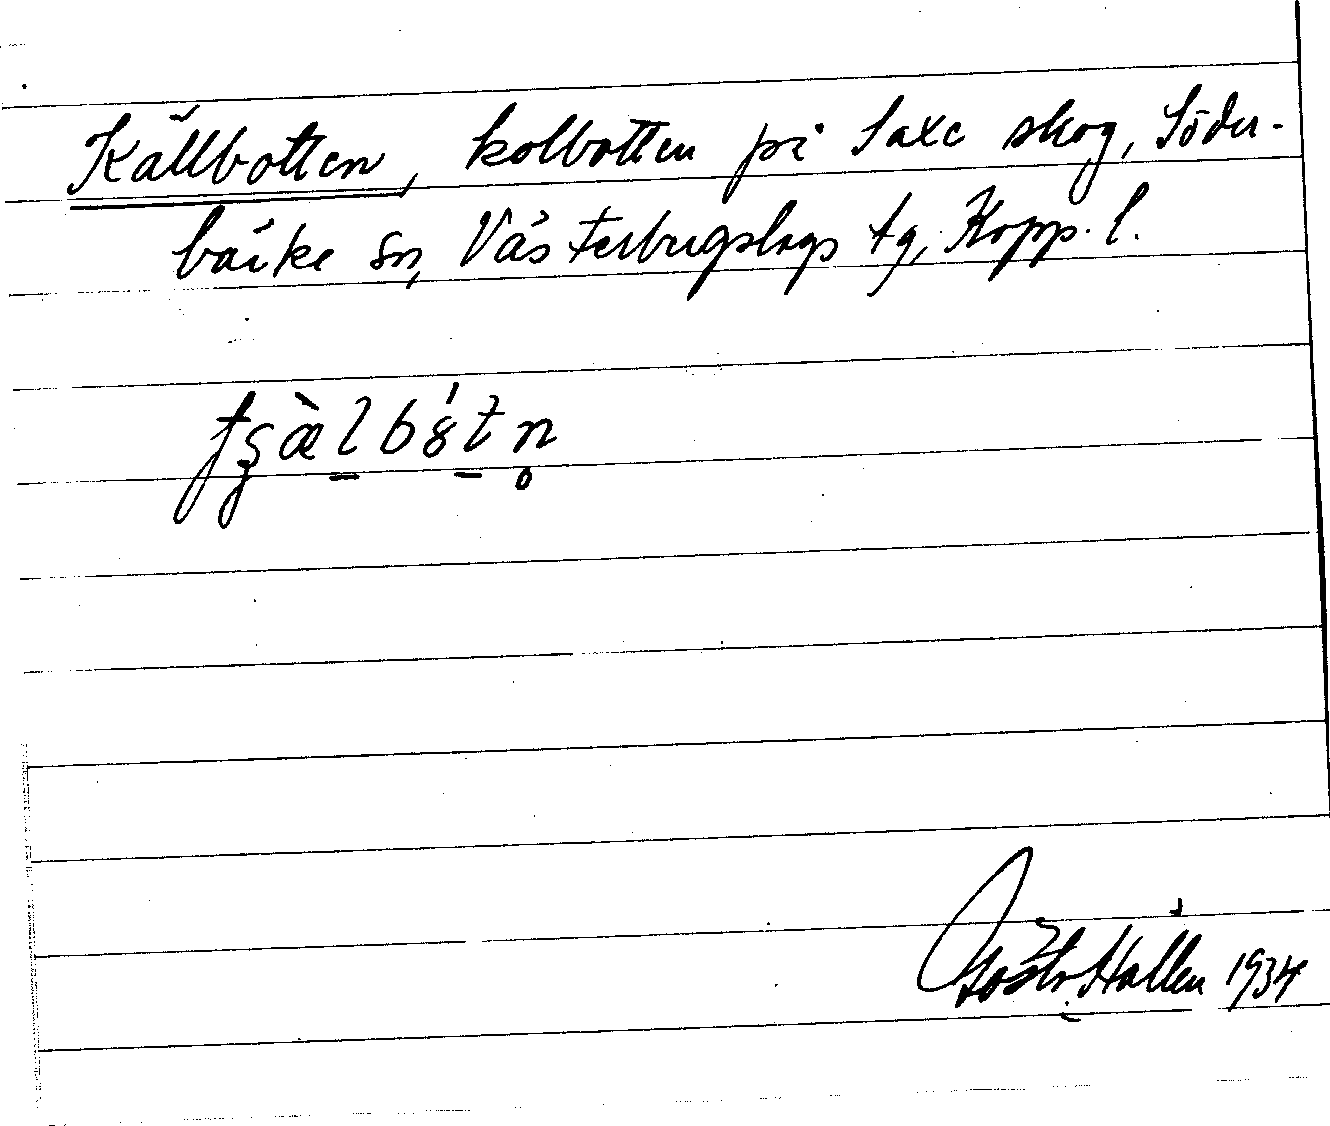 Källbotten, kolbotten på Saxe skog, Söder-
bärke sn, Västerbergslags tg, Kopp. l.
Hallén 1934